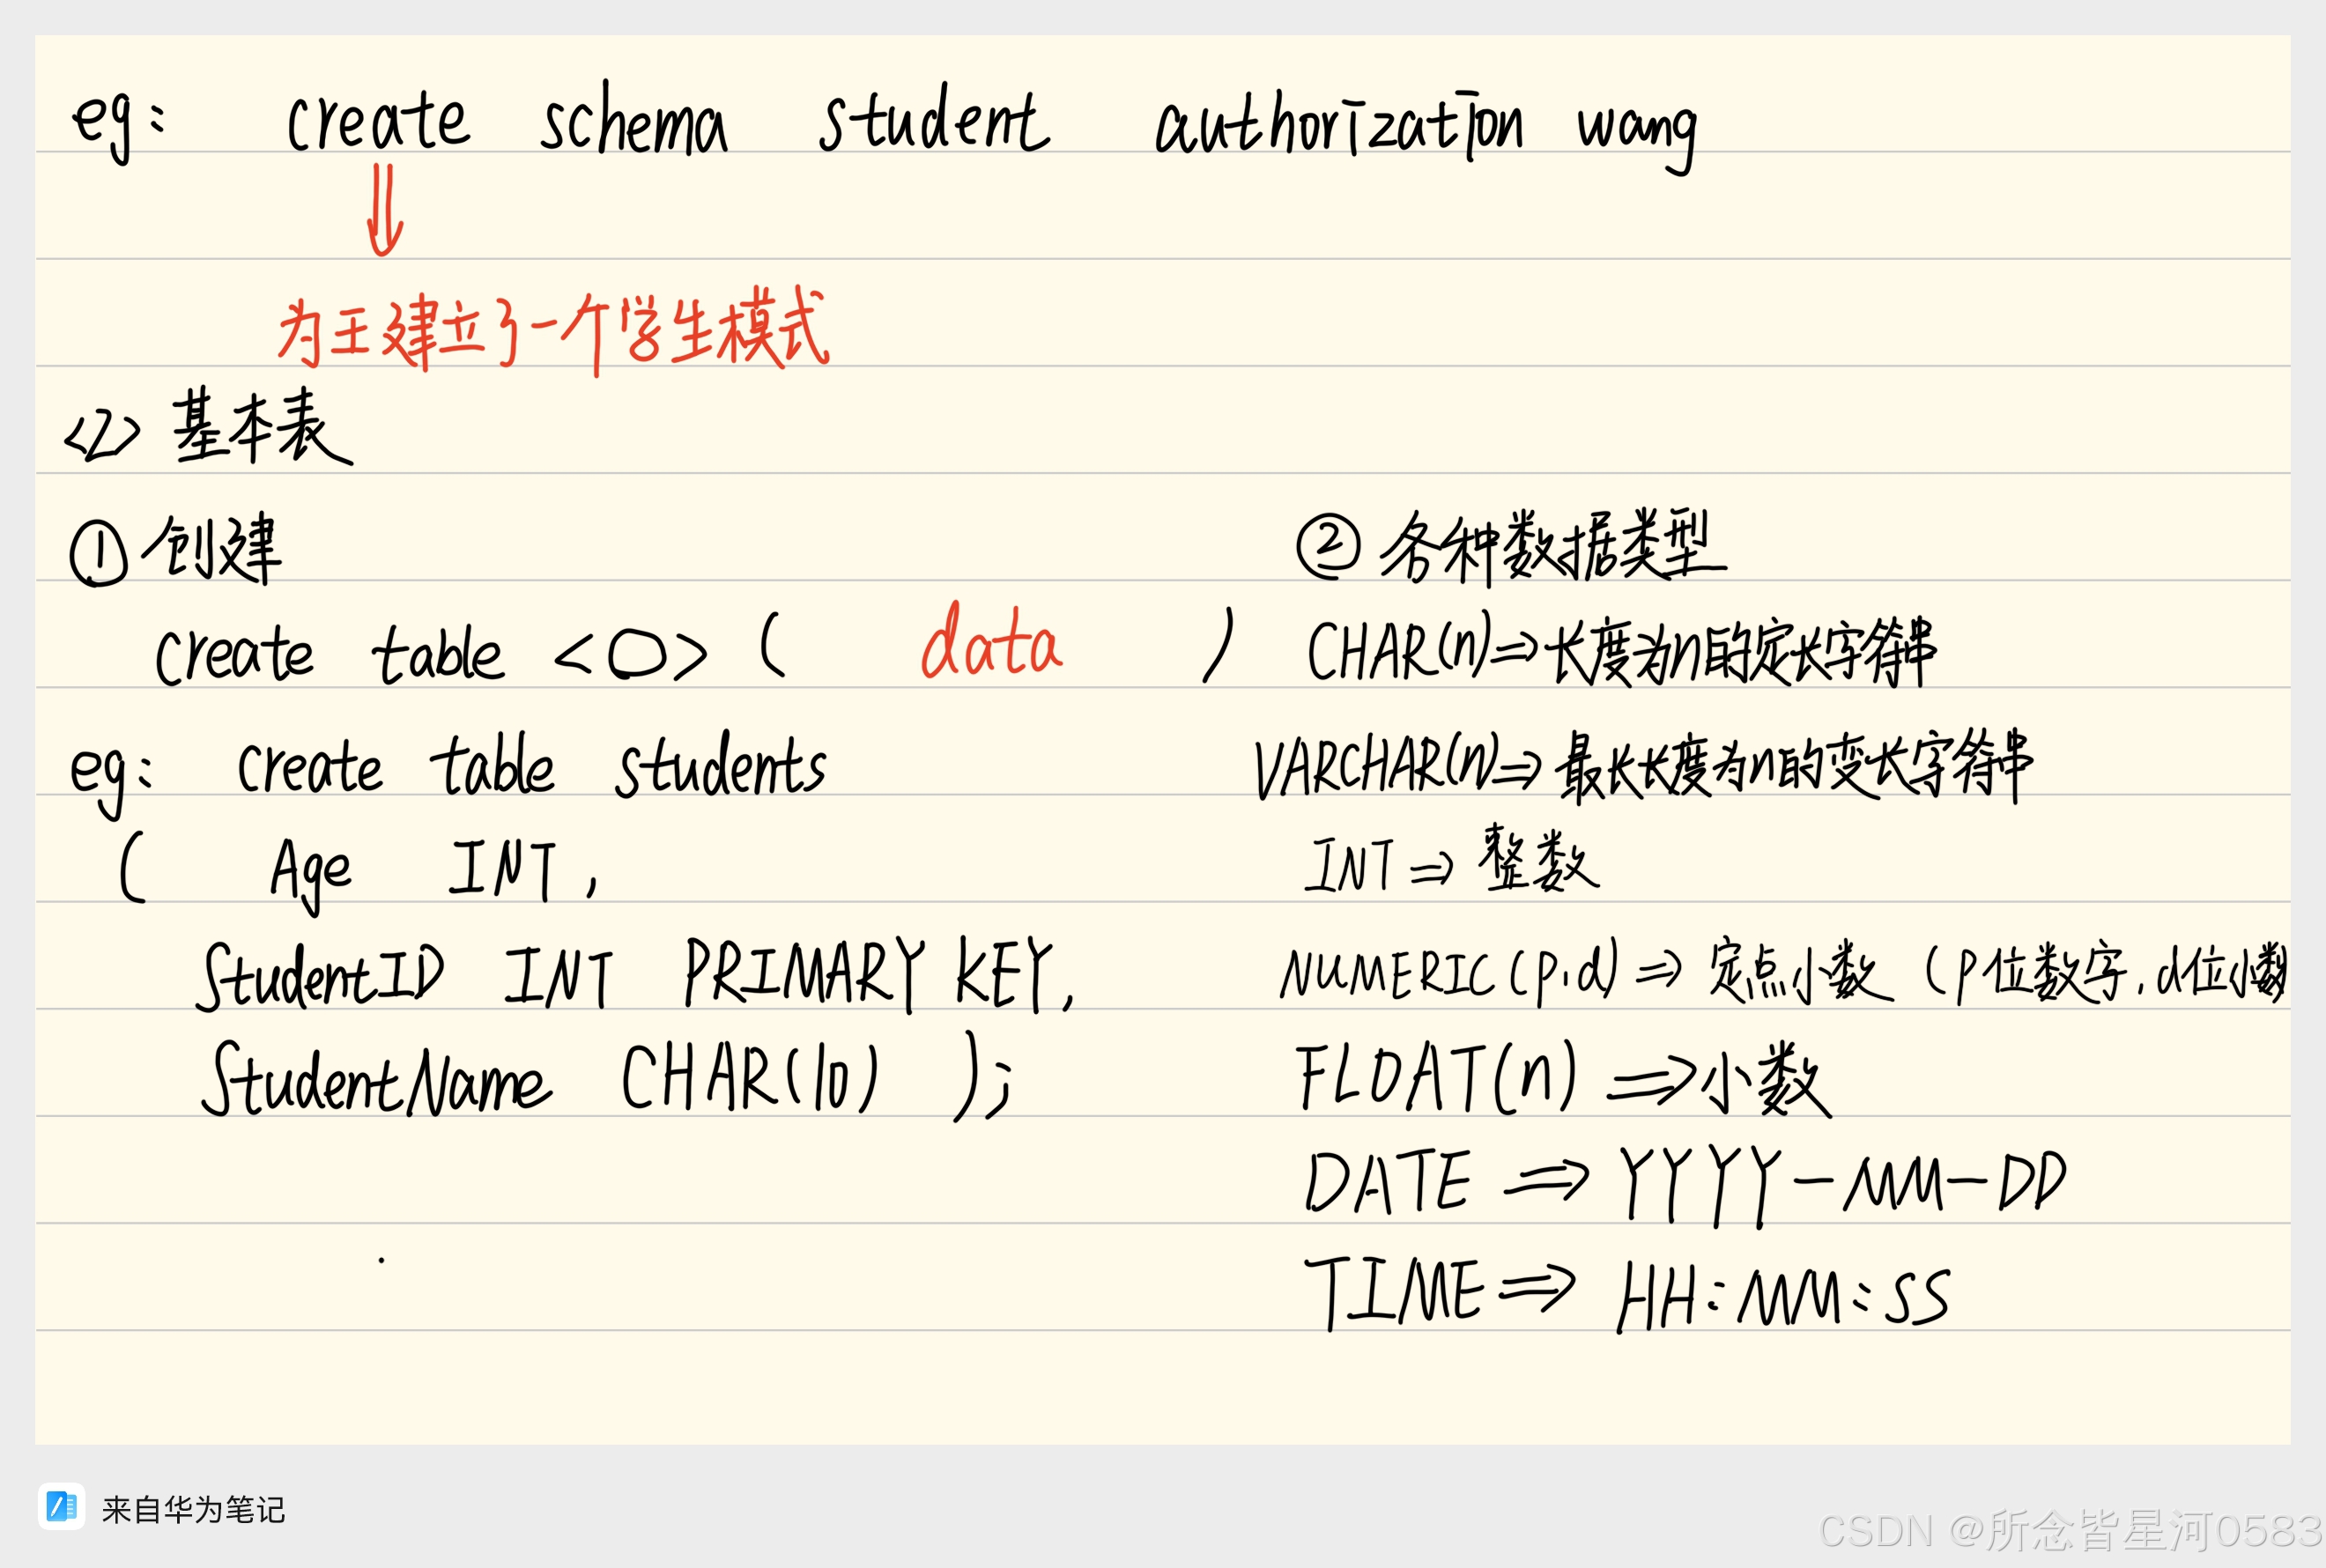 eg: create schema student authorization wang
为王建立了一个学生模式
<2> 基本表
① 创建
create table <O> ( data )
eg: create table students
( Age INT,
StudentID INT PRIMARY KEY,
StudentName CHAR(10) );
② 各种数据类型
CHAR(n)⇒长度为n的定长字符串
VARCHAR(n)⇒最长长度为n的变长字符串
INT⇒整数
NUMERIC(p.d)⇒定点小数(p位数字,d位小数
FLOAT(n)⇒小数
DATE⇒YYYY-MM-DD
TIME⇒HH:MM:SS
来自华为笔记
CSDN @所念皆星河0583